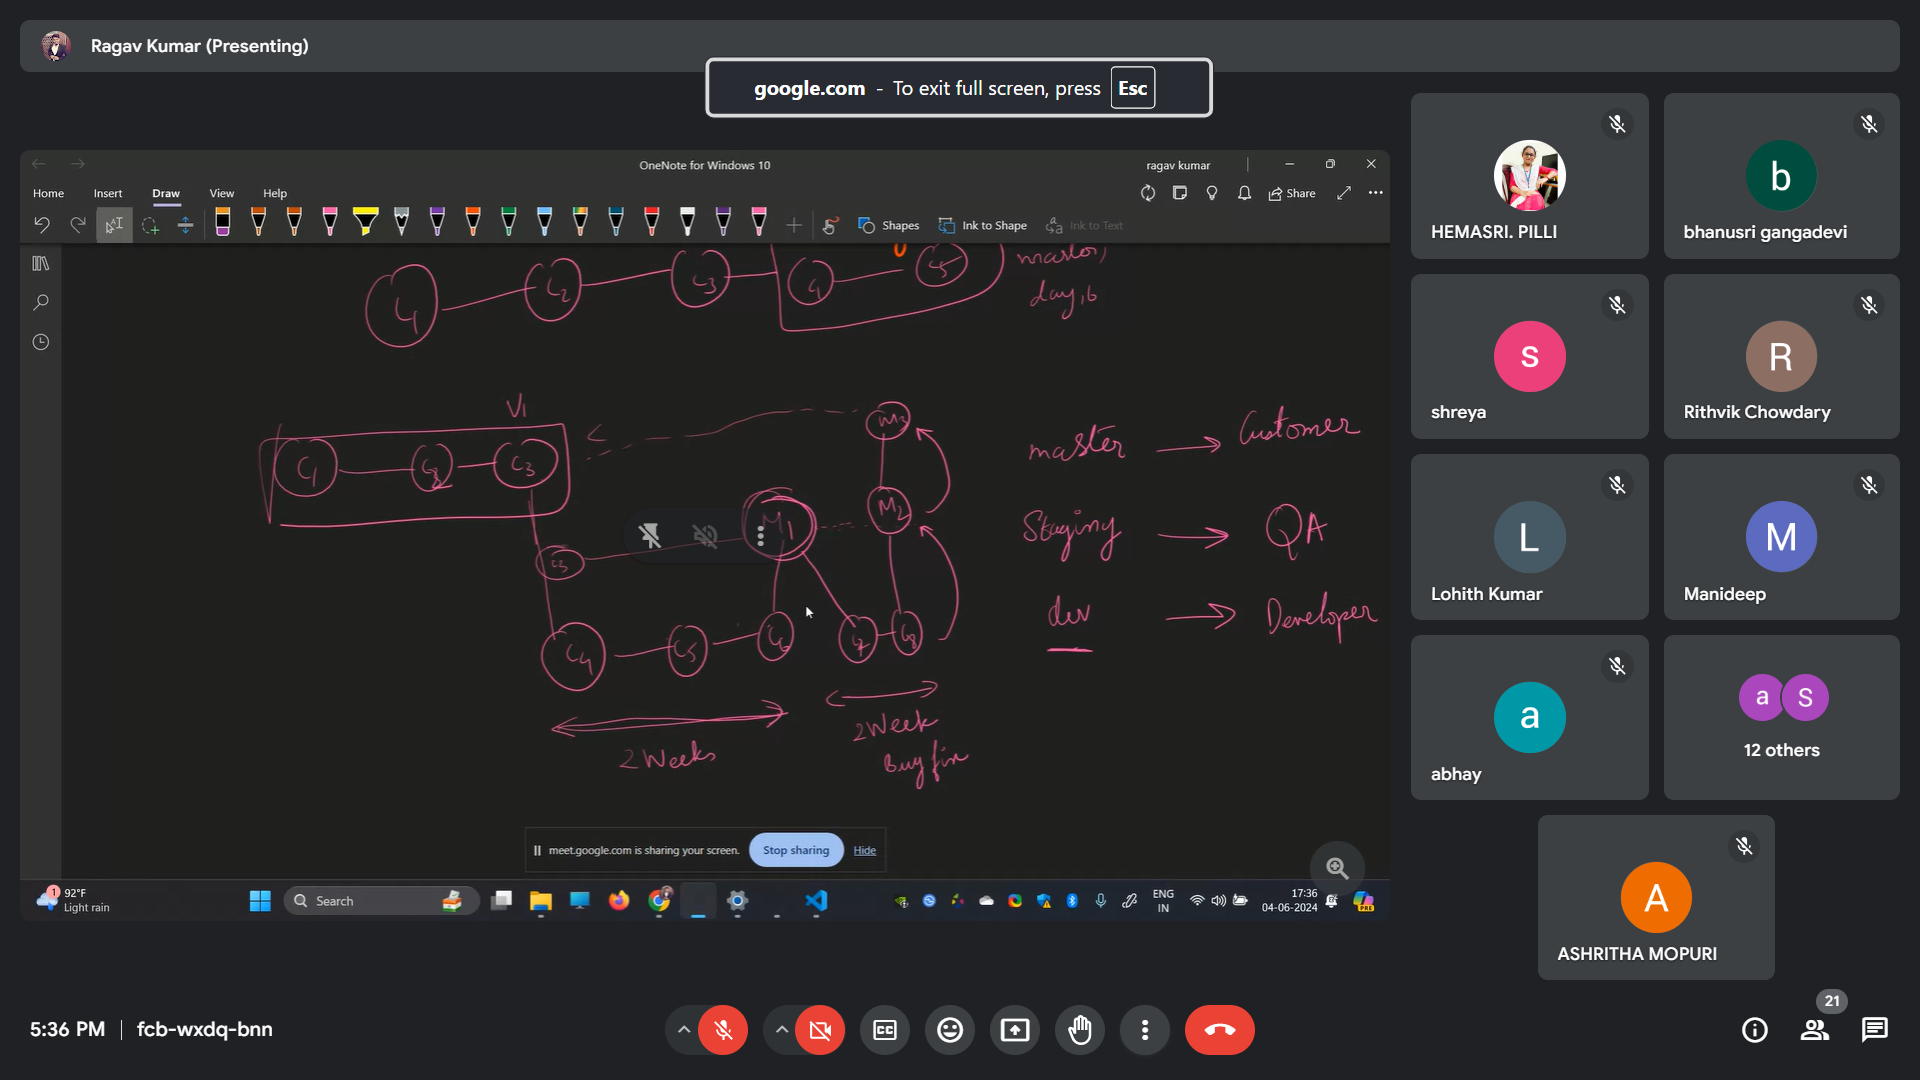 Ragav Kumar (Presenting)
google.com - To exit full screen, press Esc
OneNote for Windows 10
ragav kumar
Home Insert Draw View Help
Share
Shapes
Ink to Shape
Ink to Text
master,
day,b
C1 C2 C3 C5
V1
C1 C3
M3
M1 M2
C3
C4 C5 C6 C7 C8
2 Weeks
2 Week
Bug fix
master → Customer
Staging → QA
dev → Developer
meet.google.com is sharing your screen.
Stop sharing
Hide
1
92°F
Light rain
Search
ENG
IN
17:36
04-06-2024
PRE
HEMASRI. PILLI
b
bhanusri gangadevi
s
shreya
R
Rithvik Chowdary
L
Lohith Kumar
M
Manideep
a
abhay
a S
12 others
A
ASHRITHA MOPURI
5:36 PM | fcb-wxdq-bnn
CC
21